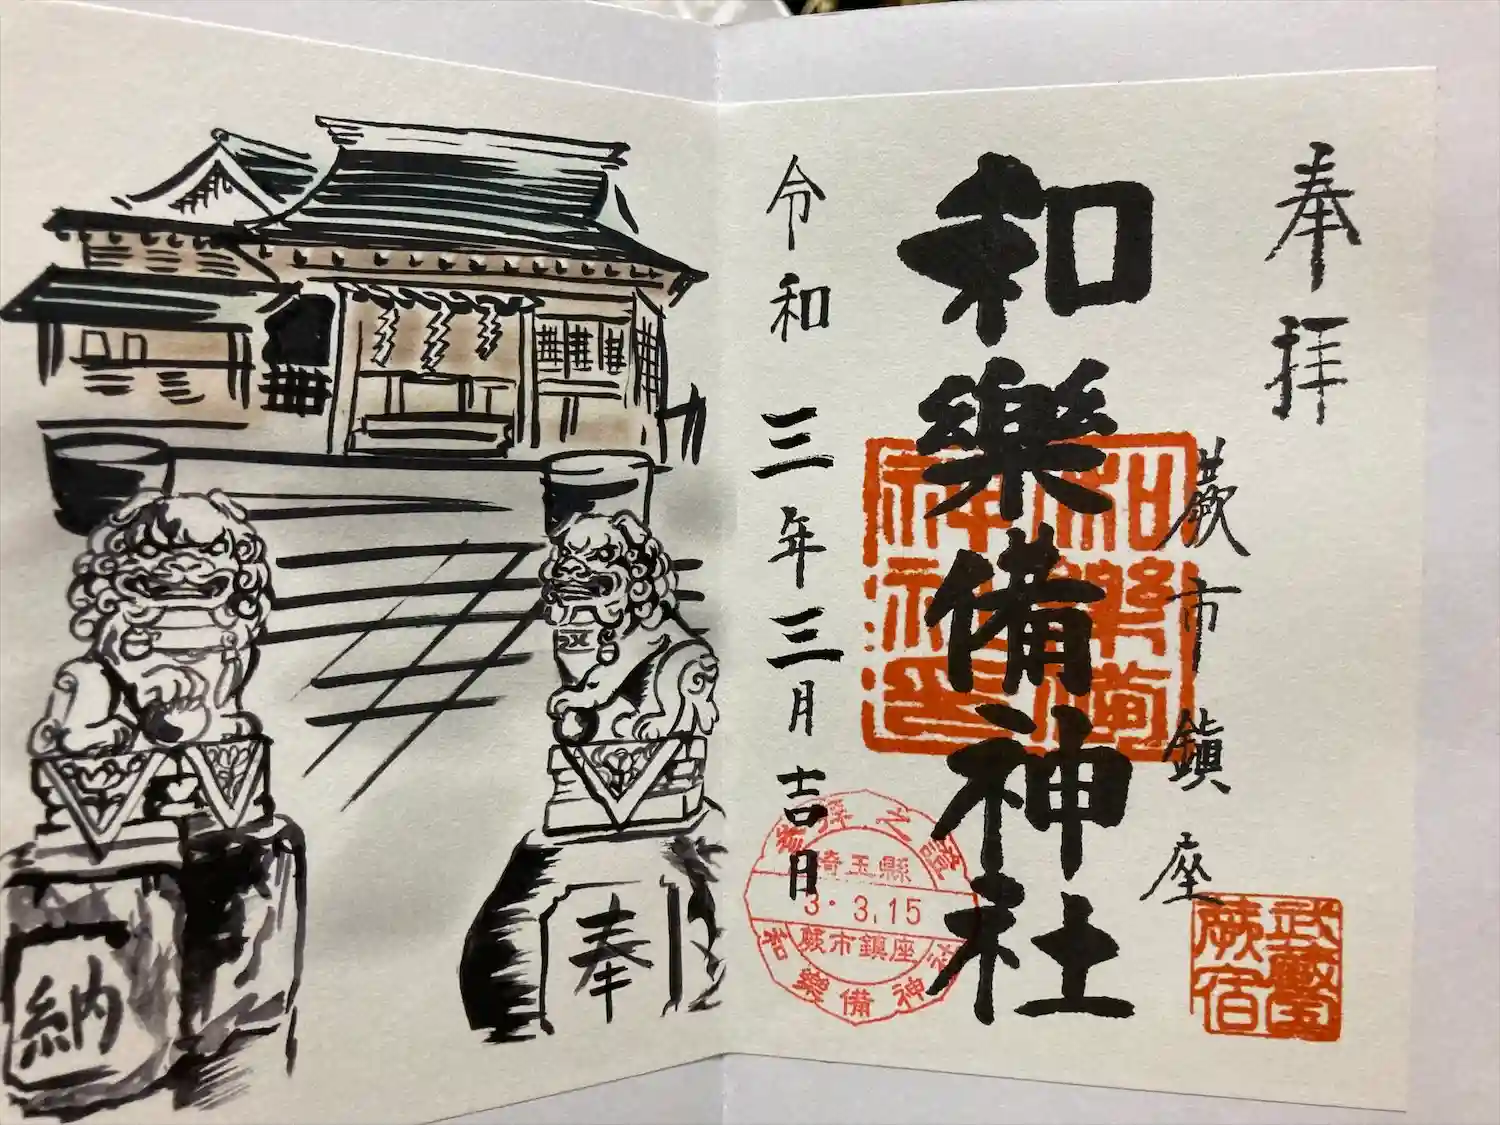 奉拝
蕨市鎮座
和樂備神社
令和三年三月吉日
和樂備
神社印
武藏
蕨宿
參拝之證
埼玉縣
3.3.15
蕨市鎮座
和樂備神社
奉
納